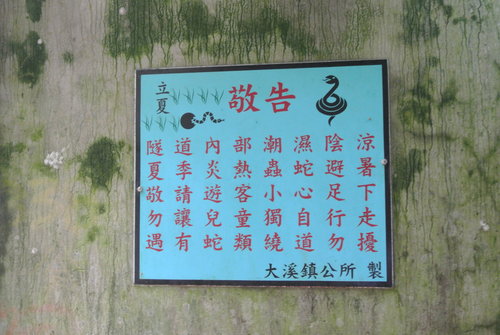 立夏
敬告
隧道內部潮濕陰涼
夏季炎熱蟲蛇避暑
敬請遊客小心足下
勿讓兒童獨自行走
遇有蛇類繞道勿擾
大溪鎮公所 製